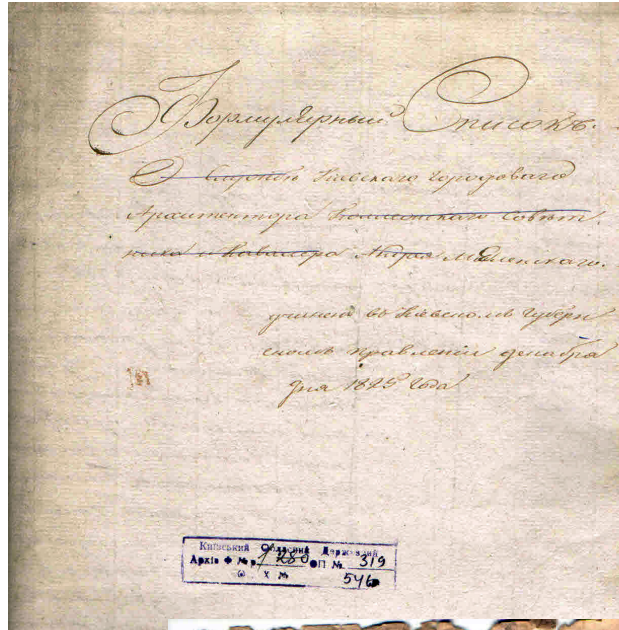 Формулярный Списокъ.
О службѣ Кіевскаго городоваго
Архитектора Коллежскаго Совѣт
ника и Кавалера Андрея Меленскаго.
учиненъ въ Кіевскомъ Губерн
скомъ правленіи декабря
дня 1825 года
Київський Обласний Державний
Архів Ф № р 1 280 ОП № 319
О. З. Х № 546